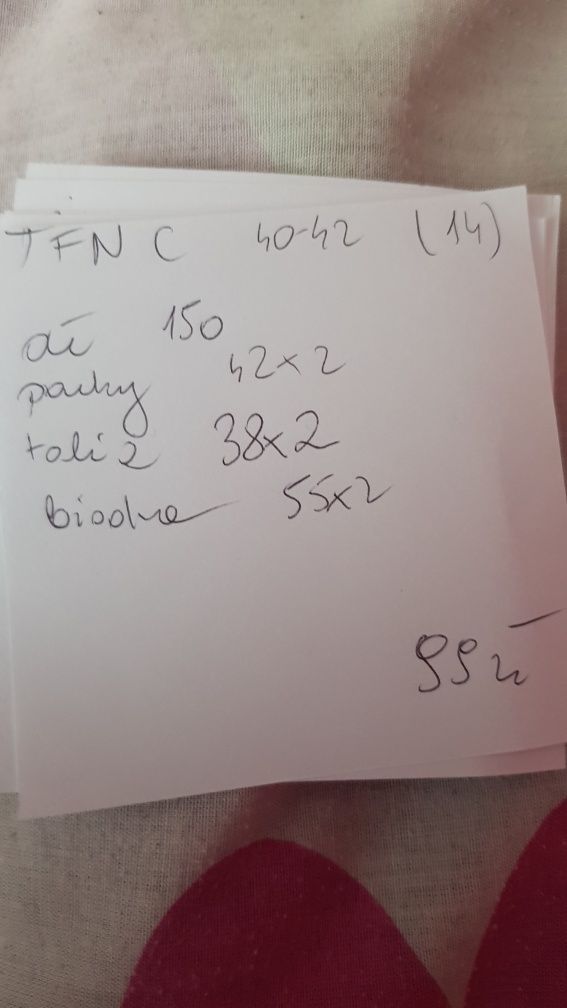 TFNC 40-42 (14)
dł 150
pachy 42x2
talia 38x2
biodra 55x2
99 zł